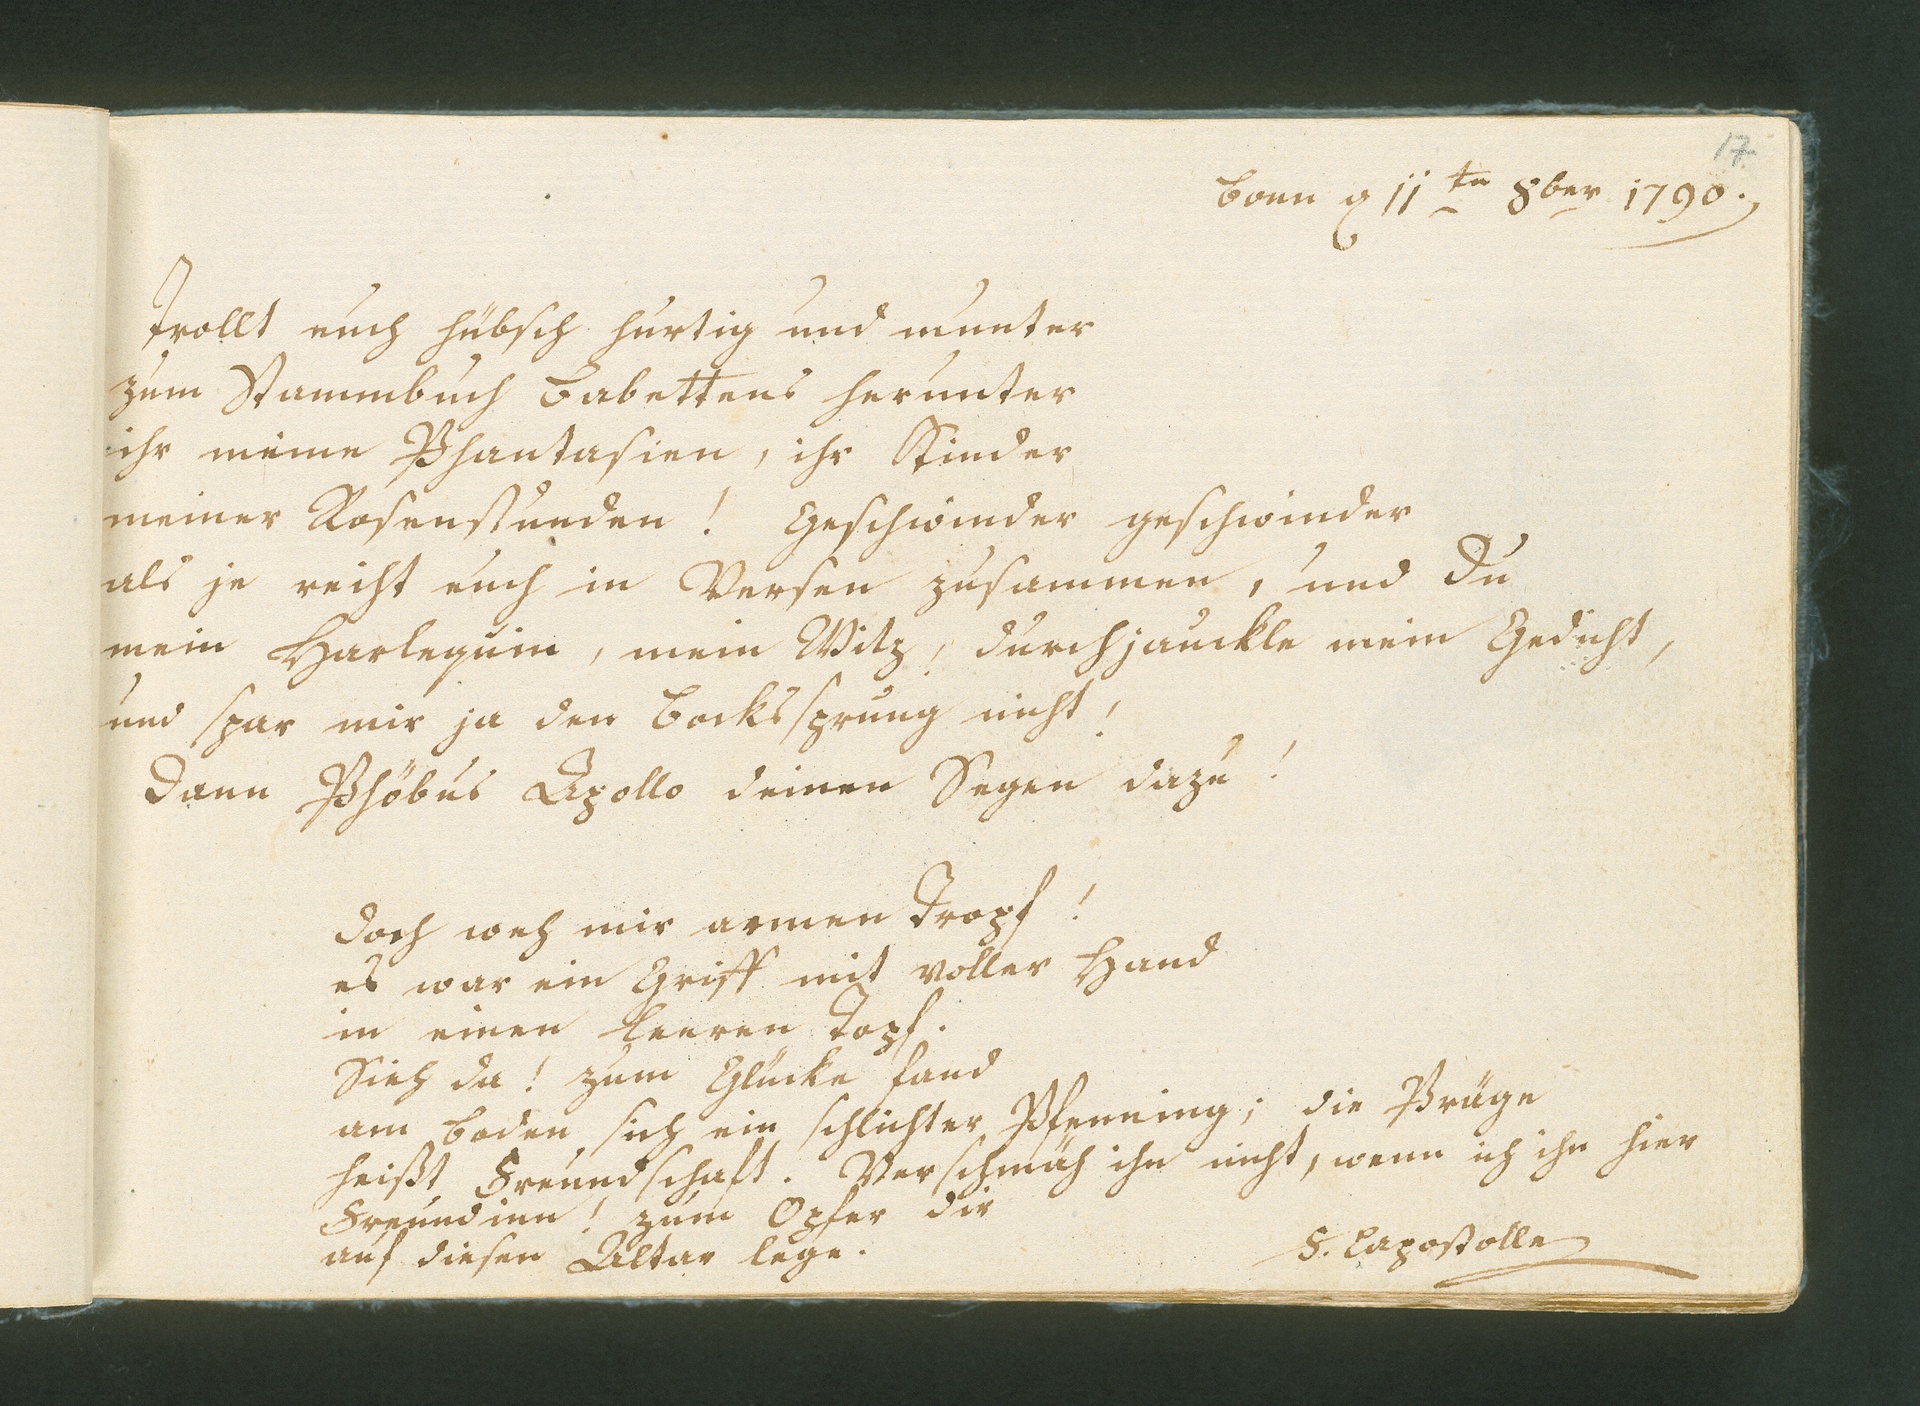 17.
Bonn d 11ten 8ber 1790.
Trollt euch hübsch hurtig und munter
zum Stammbuch Babettens herunter
ihr meine Phantasien, ihr Kinder
meiner Rosenstunden! Geschwinder geschwinder
als je reiht euch in Versen zusammen, und du
mein Harlequin, mein Witz, durchjauckle mein Gedicht,
und spar mir ja den Bockssprung nicht,
Dann Phöbus Apollo deinen Segen dazu!
doch weh mir armen Tropf!
es war ein Griff mit voller Hand
in einen leeren Topf.
Sieh da! zum Glücke fand
am Boden sich ein schlichter Pfenning; die Präge
heißt Freundschaft. Verschmäh ihn nicht, wenn ich ihn hier
Freundinn! zum Opfer dir
auf diesen Altar lege.
F. Lapostolle